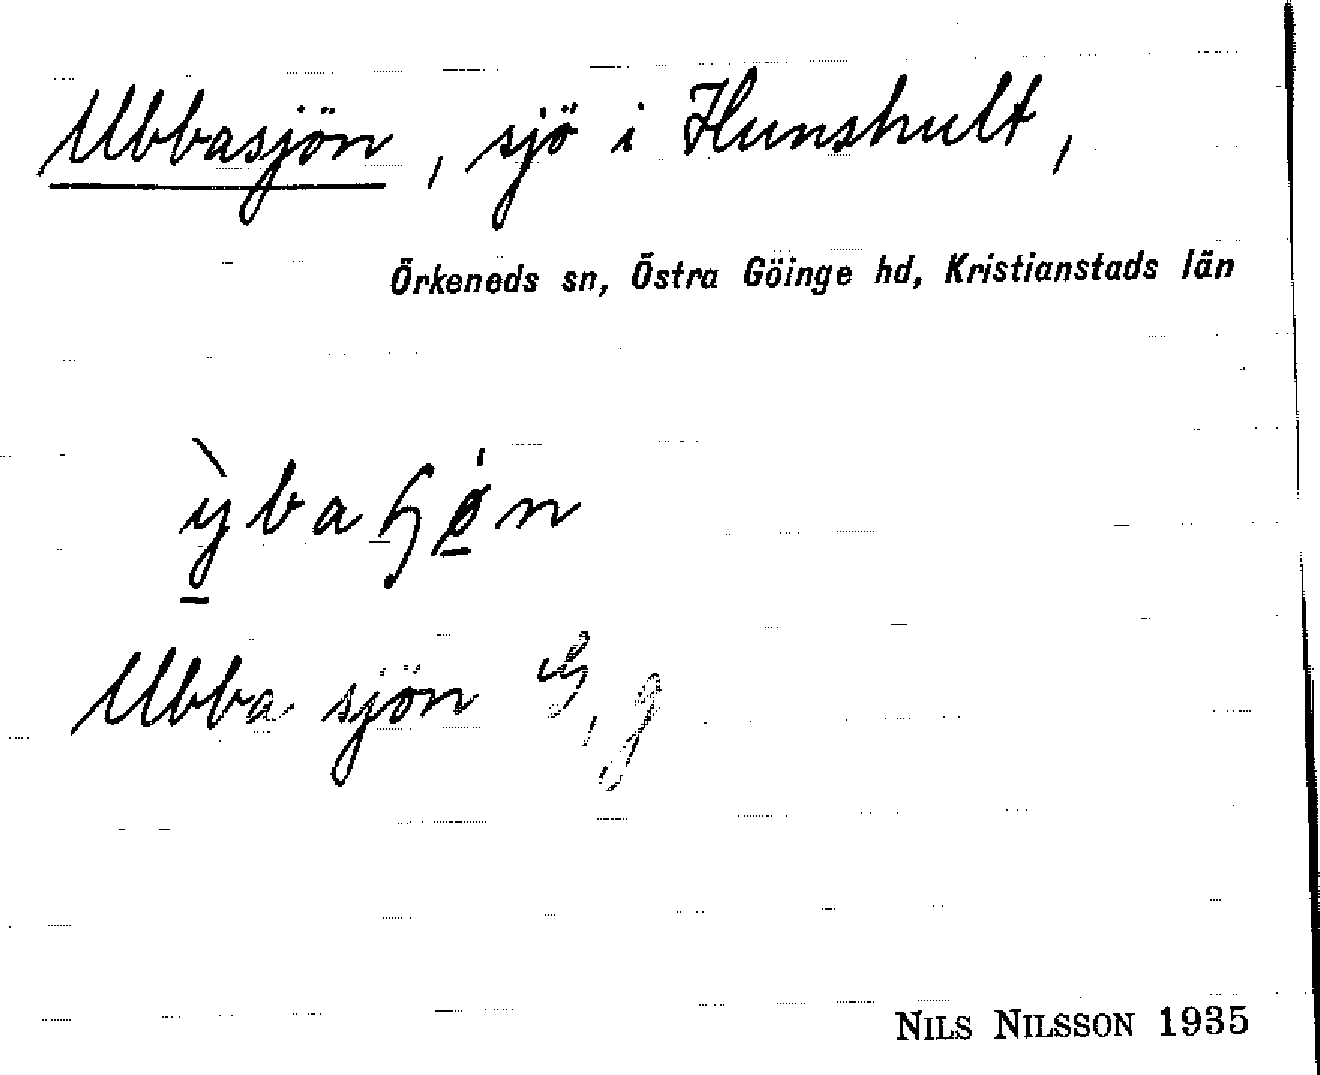 Ubbasjön, sjö i Hunshult,
Örkeneds sn, Östra Göinge hd, Kristianstads län
Ubba sjön G, g
NILS NILSSON 1935